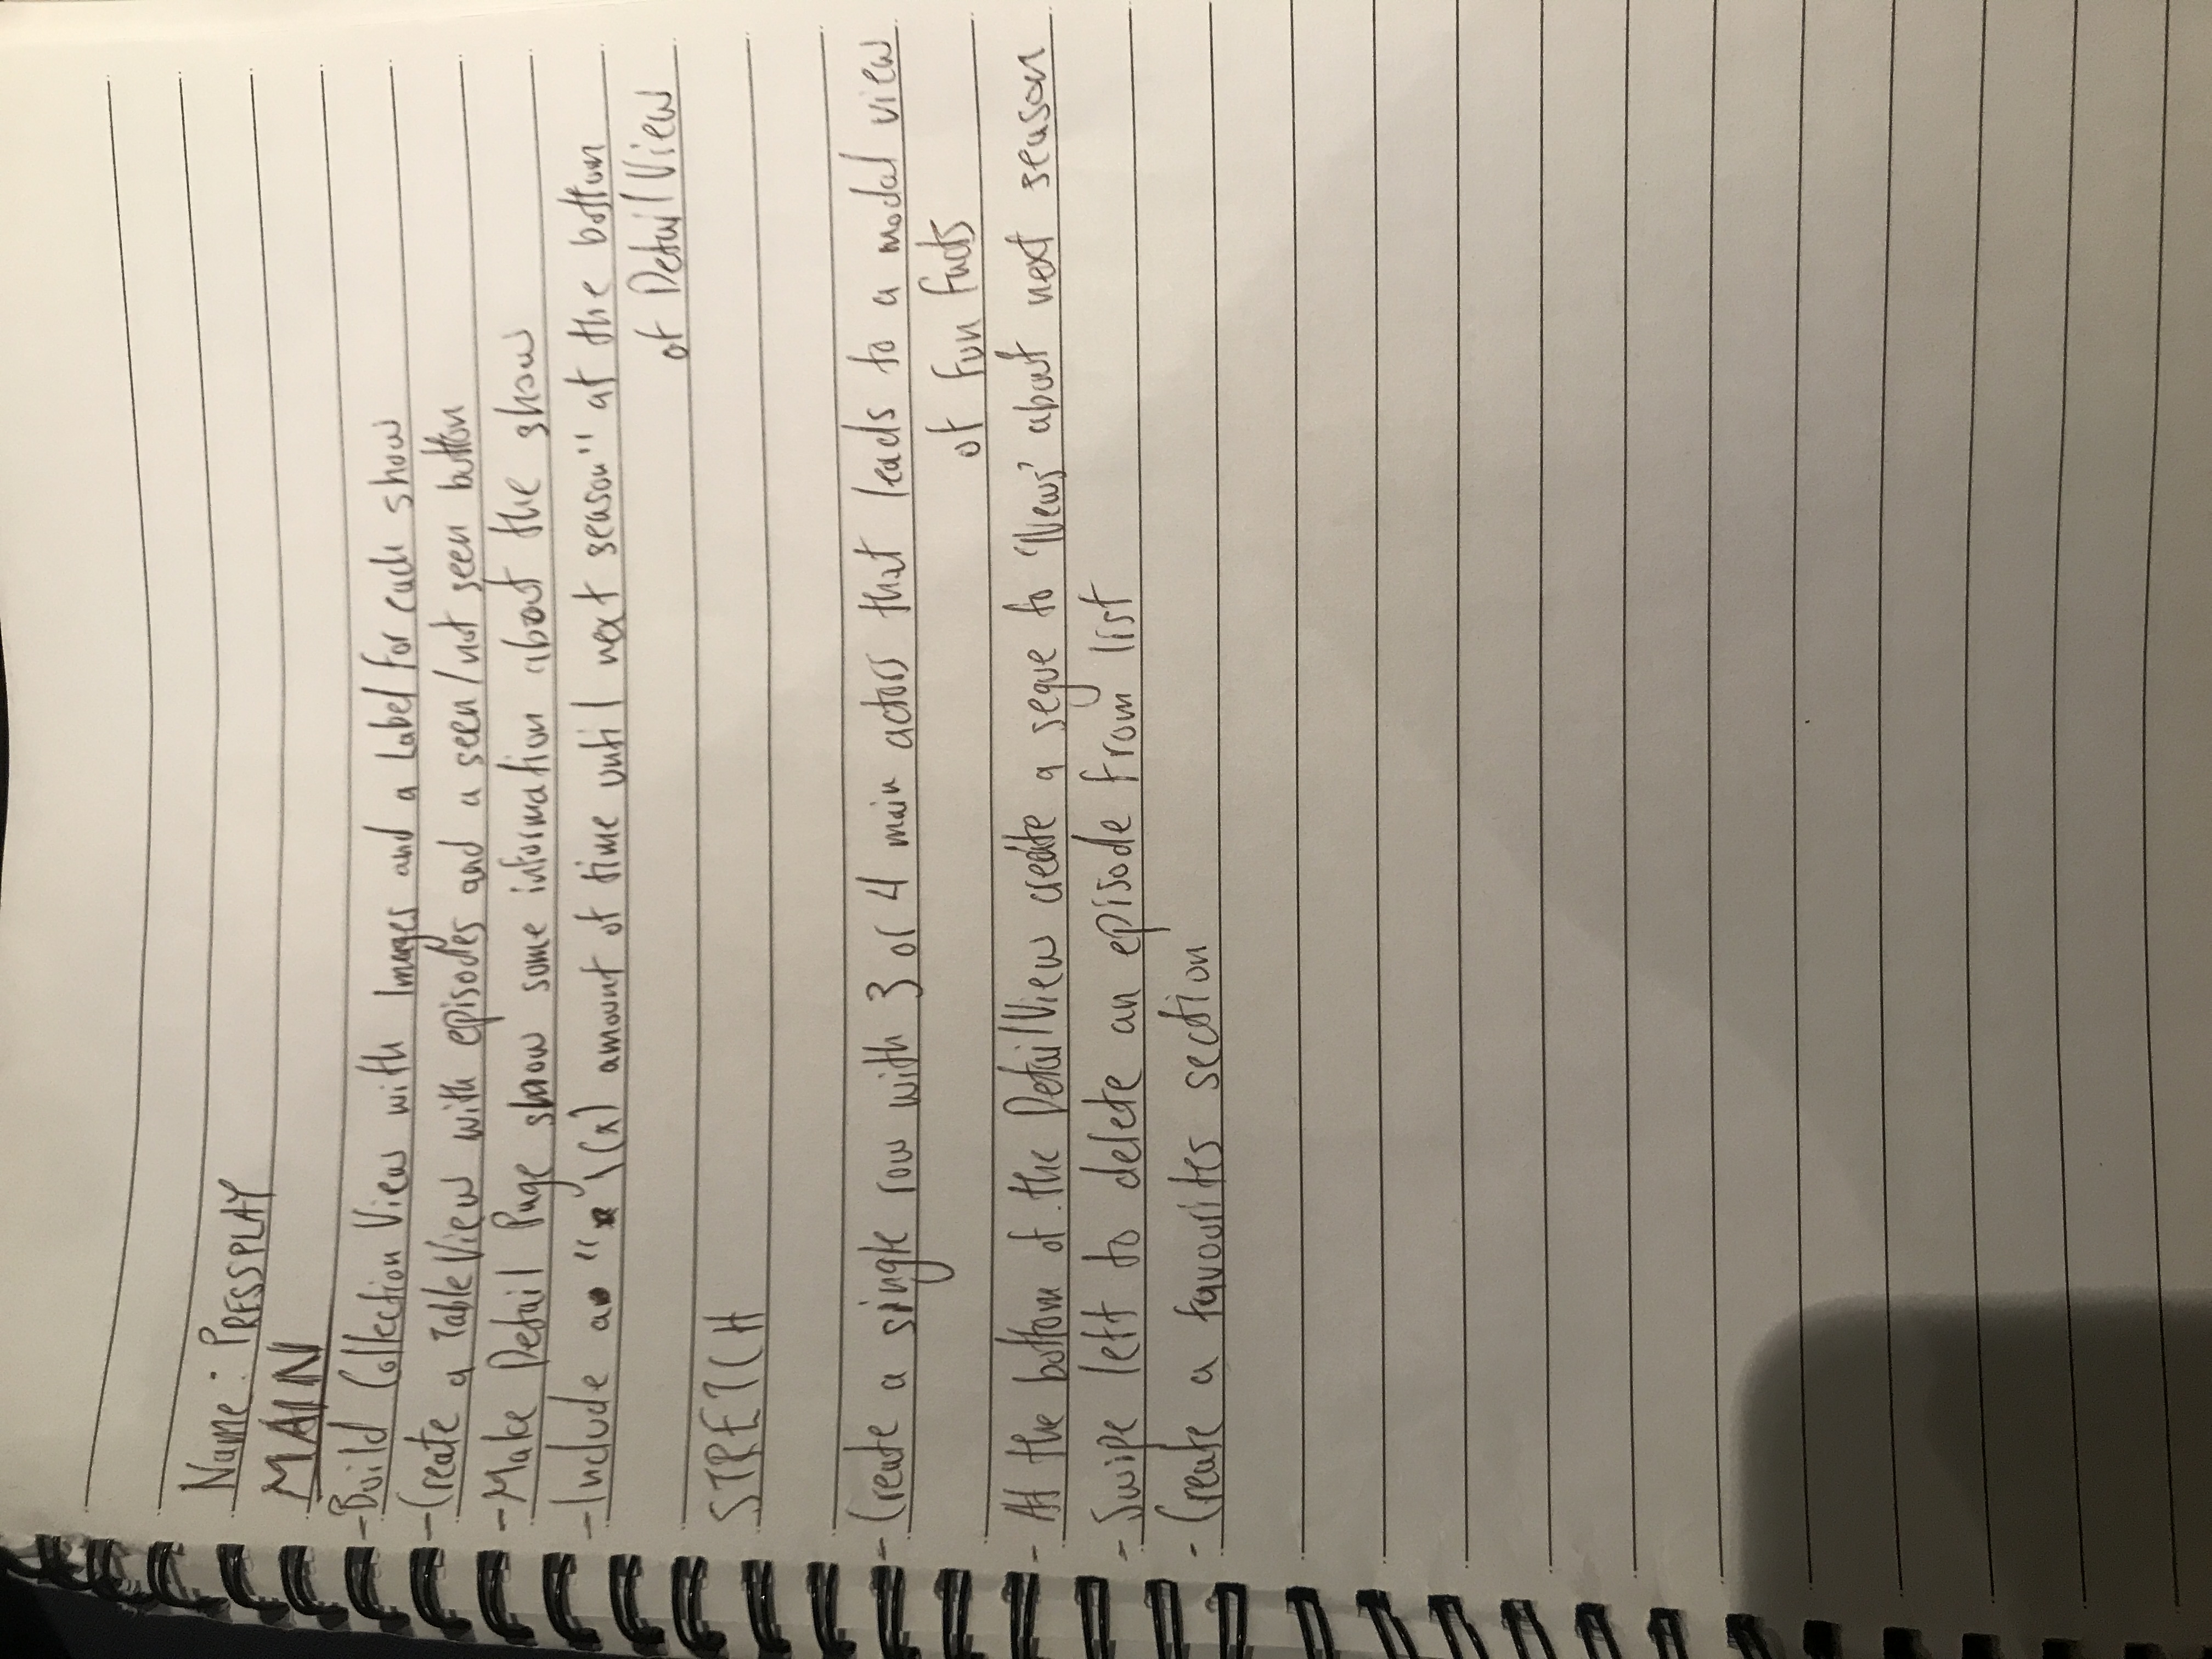 Name: PRESSPLAY
MAIN
-Build Collection View with Images and a Label for each show
-Create a Table View with episodes and a seen/not seen button
-Make Detail Page show some information about the show
-Include a "\(x) amount of time until next season" at the bottom
of Detail View
STRETCH
- Create a single row with 3 or 4 main actors that leads to a modal view
of fun facts
- At the bottom of the DetailView create a segue to 'News' about next season
- Swipe left to delete an episode from list
- Create a favourites section